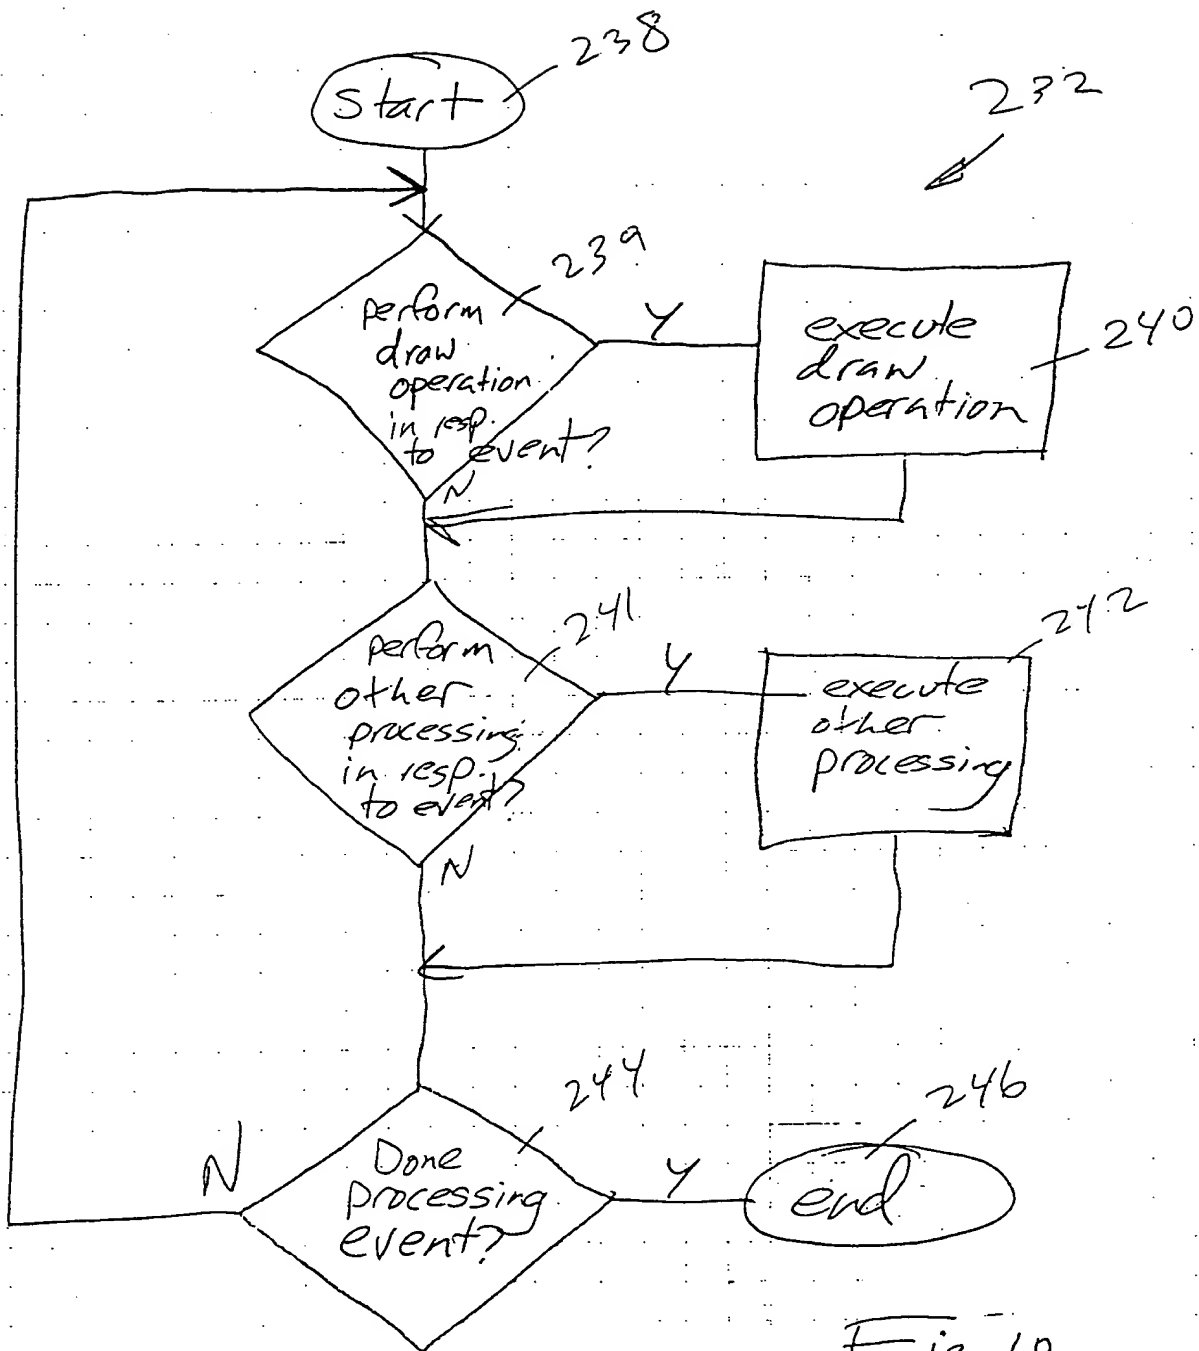 238
start
232
239
perform
draw
operation
in resp.
to event?
Y
execute
draw
operation
240
N
241
perform
other
processing
in resp.
to event?
Y
242
execute
other
processing
N
244
Done
processing
event?
N
Y
246
end